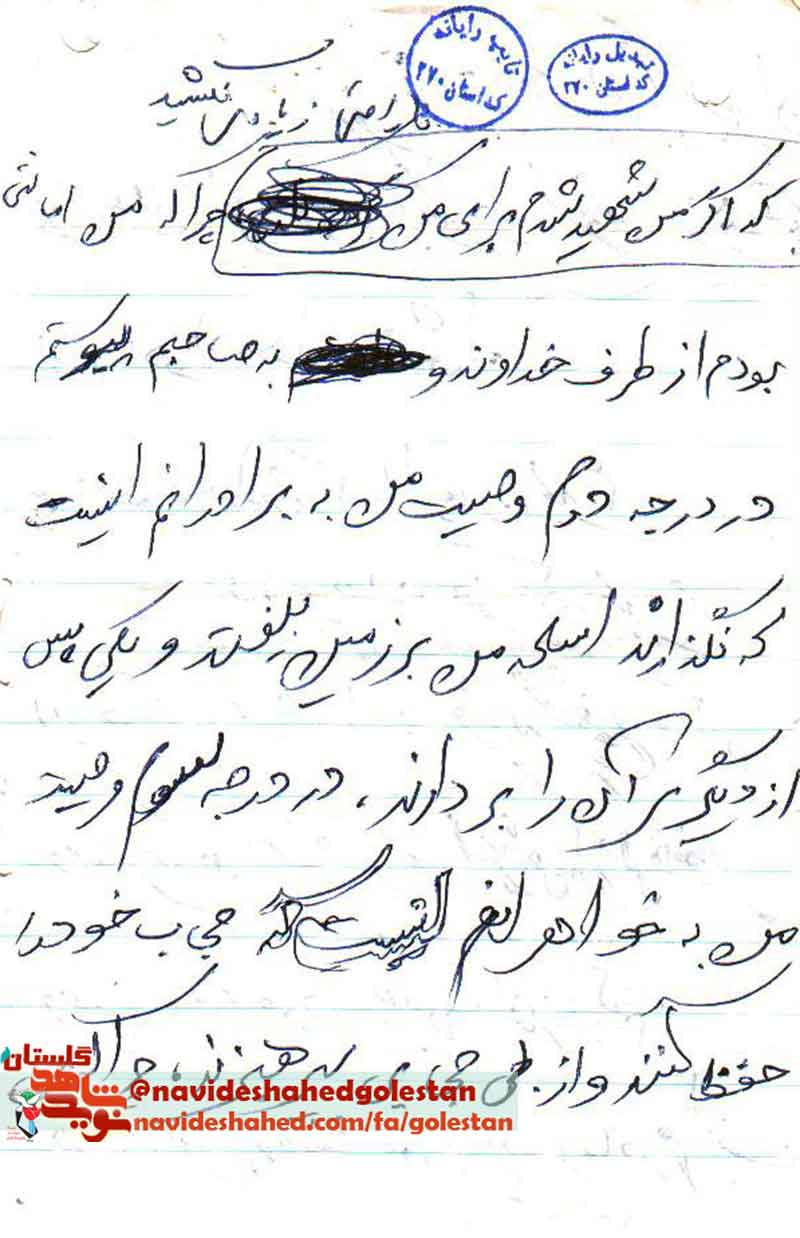 تایپ رایانه
کد استان ۲۷۰
تبدیل رایانه
کد استان ۲۷۰
ناراحتی زیادی نکشید
که اگر من شهید شدم برای من چرا که من امانتی
بودم از طرف خداوند و به صاحبم پیوستم
در درجه دوم وصیت من به برادرانم اینست
که نگذارند اسلحه من بر زمین بیفتد و یکی پس
از دیگری آن را بردارند، در درجه سوم وصیت
من به خواهرانم اینست که حجاب خود را
حفظ کنند و از بی حجابی بپرهیزند، چرا که
نوید شاهد گلستان
@navideshahedgolestan
navideshahed.com/fa/golestan